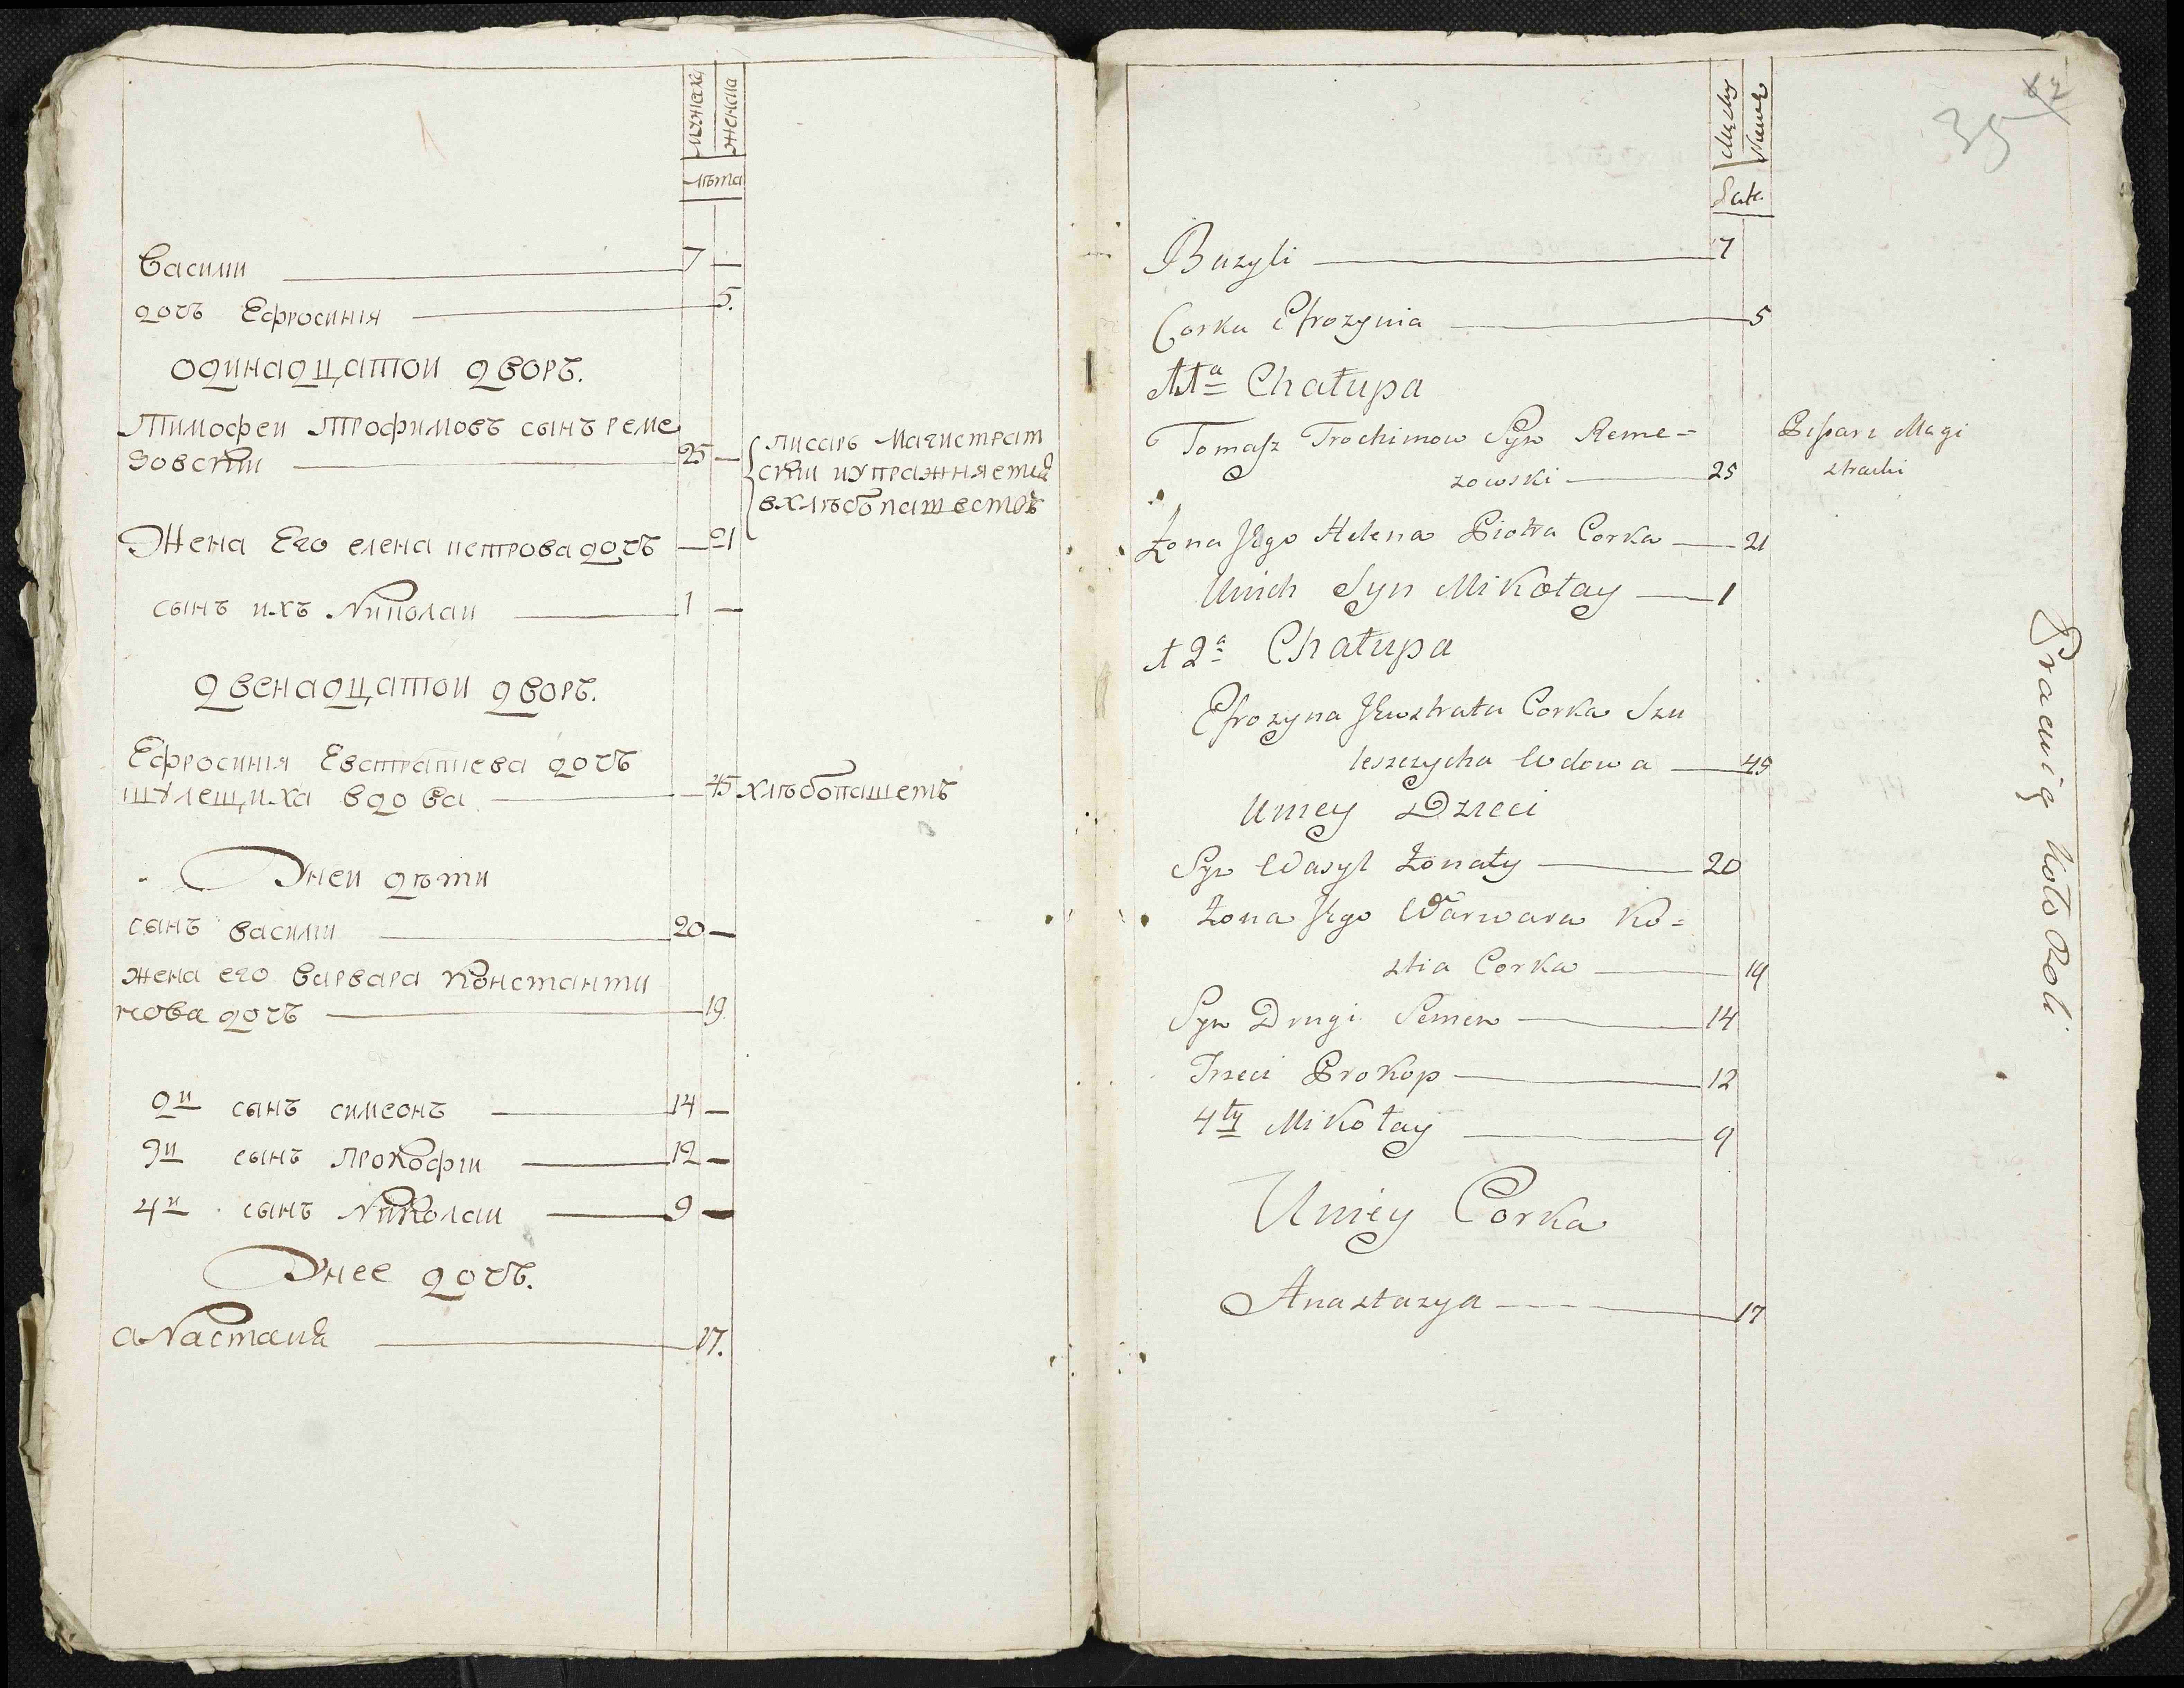 мужеска
женска
лѣта
Василии 7 —
дочь Ефросинія 5.
одинадцатои дворъ.
Тимофеи Трофимовъ сынъ реме
зовскіи 25 —
писарь Магистрат
скіи иупражняетца
вхлѣбопашествѣ
Жена Его елена петрова дочь — 21
сынъ ихъ Николаи 1 —
двенадцатои дворъ.
Ефросинія Евстратиева дочь
шулещиха вдова — 45 хлѣбопашетъ
Унеи дѣти
сынъ василіи 20 —
жена его варвара Константи
нова дочь 19
2и сынъ симеонъ 14 —
3и сынъ прокофіи 12 —
4и сынъ Николаи 9 —
Унее дочь.
аNастаиа 17.
62
35
Męzka
Lat.
Bazyli 7
Corka Efrozynia 5
11a Chałupa
Tomasz Trochimow Syn Reme=
zowski 25
Pisarz Magi
stracki
Żona Jego Helena Piotra Corka 21
Unich Syn Mikołay 1
12a Chałupa
Efrozyna Jewstrata Corka Szu
leszczycha Wdowa 45
Uniey Dzieci
Syn Wasyl Żonaty 20
Żona Jego Warwara Ko=
stia Corka 19
Syn Drugi Semen 14
Trzeci Prokop 12
4ty Mikołay 9
Uniey Corka
Anastazya 17
Pracuią koło Roli